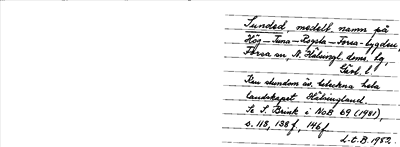 Sunded, medelt. namn på
Hög-Tuna-Rogsta-Forsa-bygden,
Forsa sn, N. Hälsingl. doms. hg,
Gävl. l.
Kan stundom äv. beteckna hela
landskapet Hälsingland.
Se S. Brink i NoB 69 (1981),
s. 113, 138 f, 146 f
L.E.B. 1982.